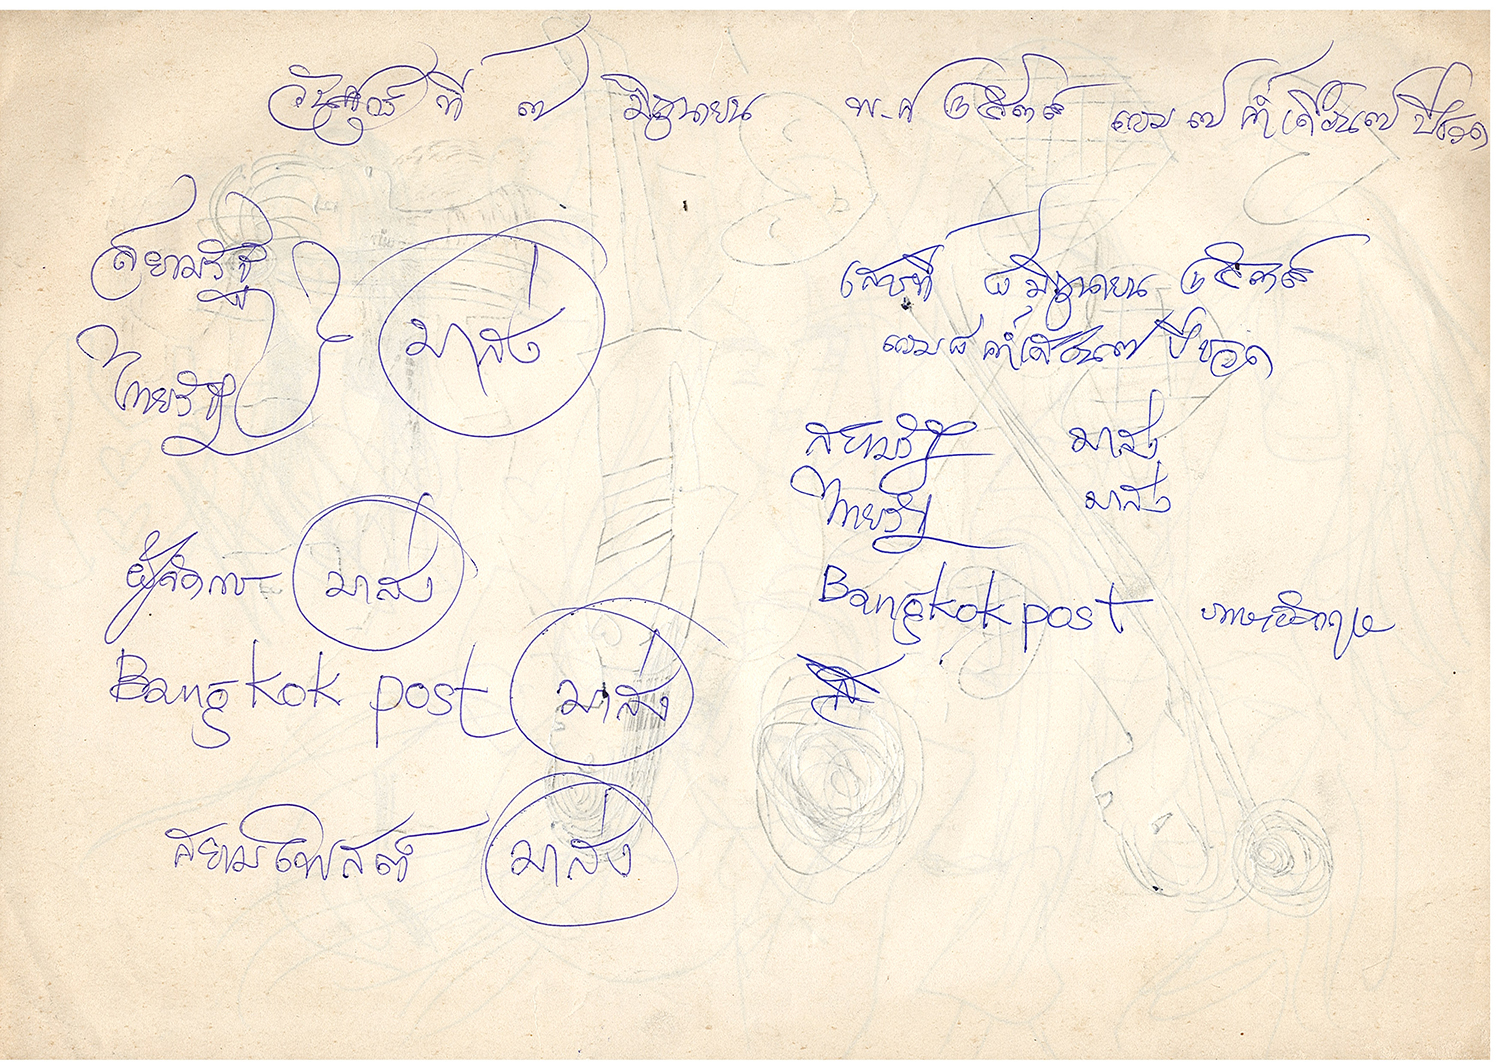 วันศุกร์ ที่ ๗ มิถุนายน พ.ศ ๒๕๓๙ แรม ๗ ค่ำเดือน๗ ปีชวด
สยามรัฐ
มาส่ง
ไทยรัฐ
ผู้จัดการ มาส่ง
Bangkok post มาส่ง
สยามโพสต์ มาส่ง
เสาร์ที่ ๘ มิถุนายน ๒๕๓๙
แรม ๘ ค่ำเดือน๗ ปีชวด
สยามรัฐ มาส่ง
ไทยรัฐ มาส่ง
Bangkok post ภาษาอังกฤษ